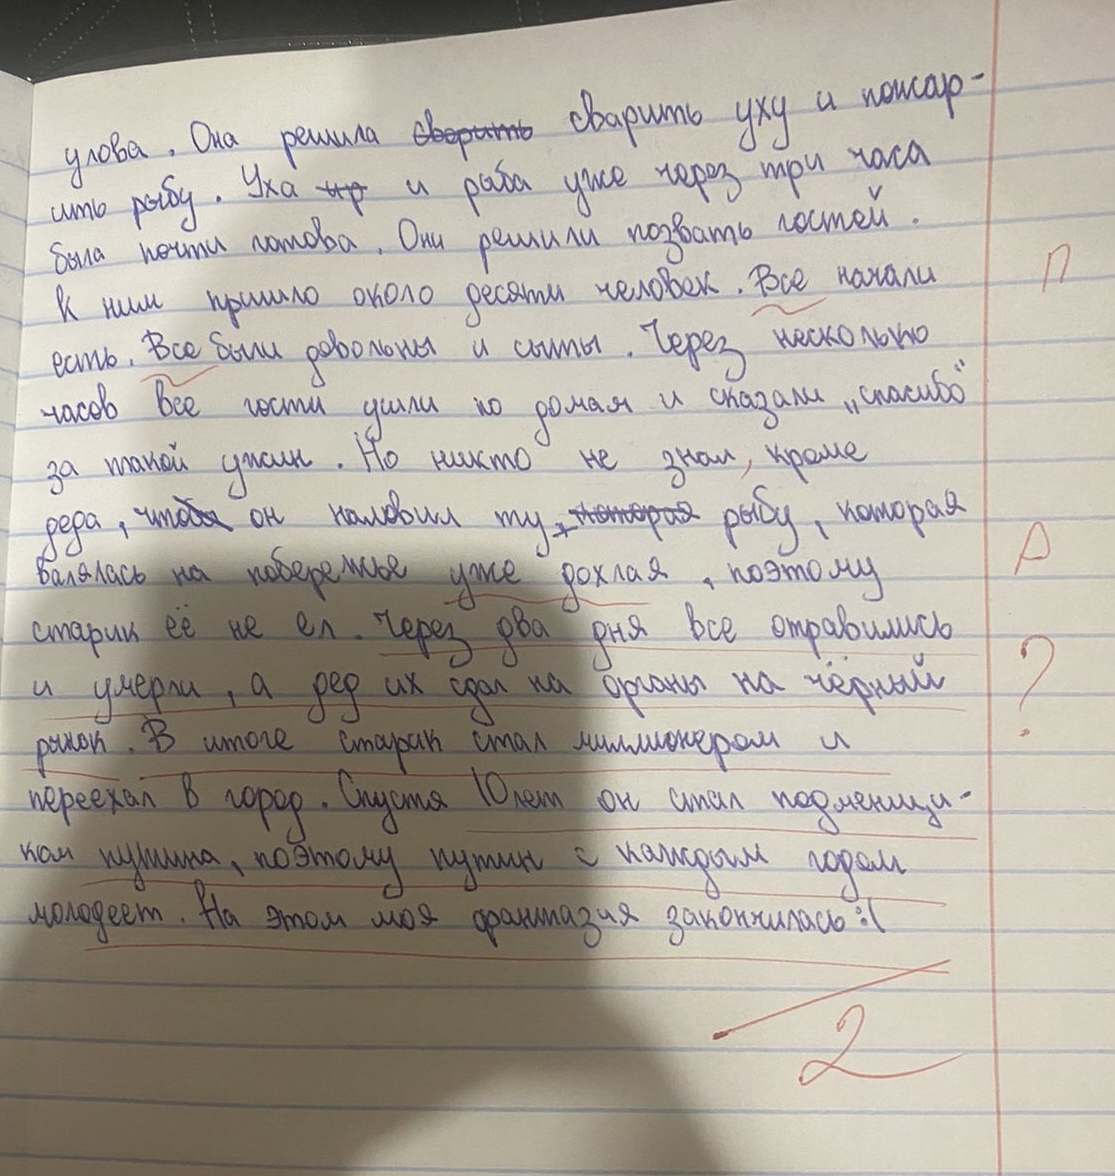 улова. Она решила сворить сварить уху и пожар-
ить рыбу. Уха ир и рыба уже через три часа
была почти готова. Они решили позвать гостей.
К ним пришло около десяти человек. Все начали
П
есть. Все были довольны и сыты. Через несколько
часов все гости ушли по домам и сказали „спасибо"
за такой ужин. Но никто не знал, кроме
деда, чтобы он наловил ту, которая рыбу, которая
валялась на побережье уже дохлая, поэтому
Р
старик её не ел. Через два дня все отравились
и умерли, а дед их сдал на органы на чёрный
?
рынок. В итоге старик стал миллионером и
переехал в город. Спустя 10 лет он стал подменщи-
ком путина, поэтому путин с каждым годом
молодеет. На этом моя фантазия закончилась :(
2